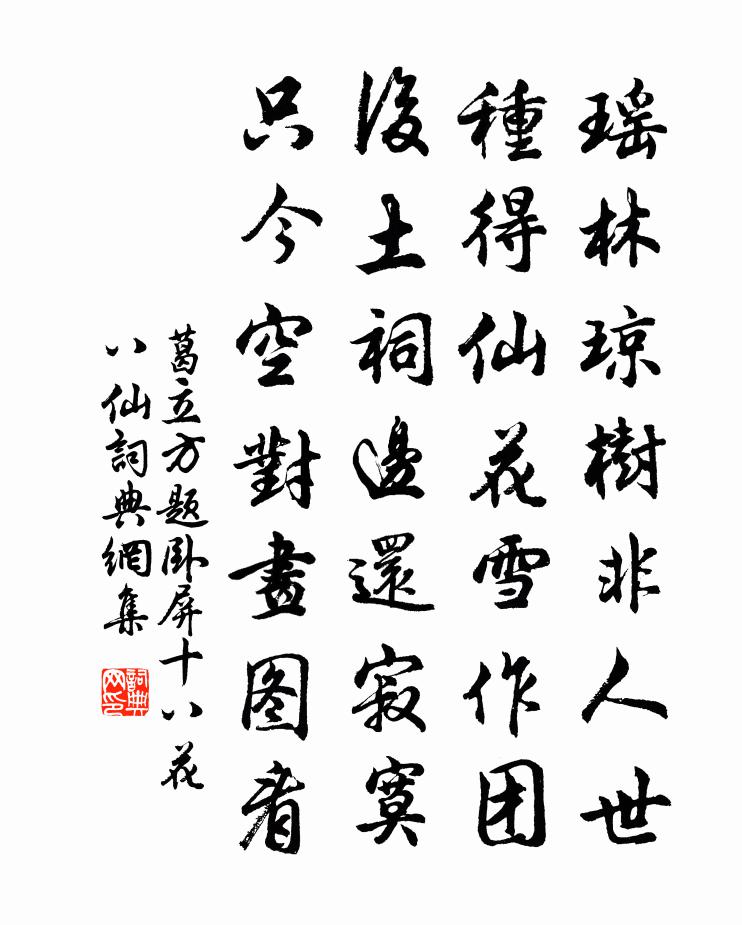 瑶林琼樹非人世
種得仙花雪作团
後土祠邊還寂寞
只今空對畫图看
葛立方题卧屏十八花
八仙詞典網集
詞典网印